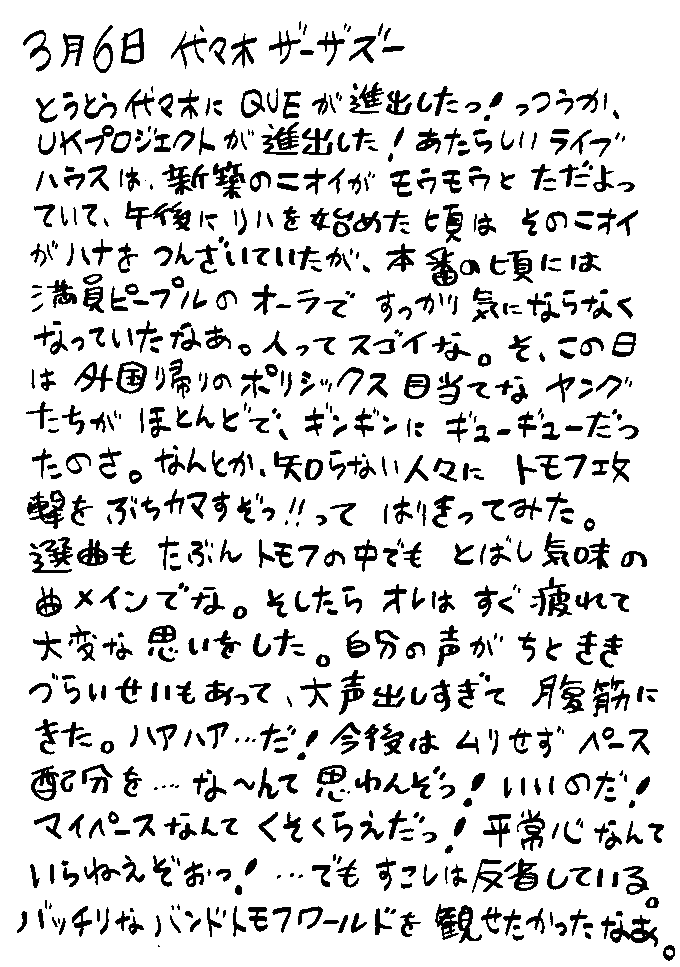 3月6日 代々木 ザーザズー
とうとう代々木に QUE が進出したっ!っつうか、
UKプロジェクトが進出した!あたらしいライブ
ハウスは、新築のニオイが モウモウと ただよっ
ていて、午後にリハを始めた頃は そのニオイ
がハナを つんざいていたが、本番の頃には
満員ピープルの オーラで すっかり気にならなく
なっていたなあ。人ってスゴイな。そ、この日
は外国帰りのポリシックス目当てな ヤング
たちが ほとんどで、ギンギンに ギューギューだっ
たのさ。なんとか、知らない人々に トモフ攻
撃を ぶちカマすぞっ!!って はりきってみた。
選曲も たぶんトモフの中でも とばし気味の
曲メインでな。そしたら オレは すぐ疲れて
大変な思いをした。自分の声が ちとききき
づらいせいもあって、大声出しすぎて 腹筋に
きた。ハアハア…だ!今後は ムリせず ペース
配分を… な〜んて思わんぞっ!いいのだ!
マイペースなんて くそくらえだっ!平常心なんて
いらねえぞおっ!…でも すこしは反省している。
バッチリな バンドトモフワールドを 観せたかったなあ。